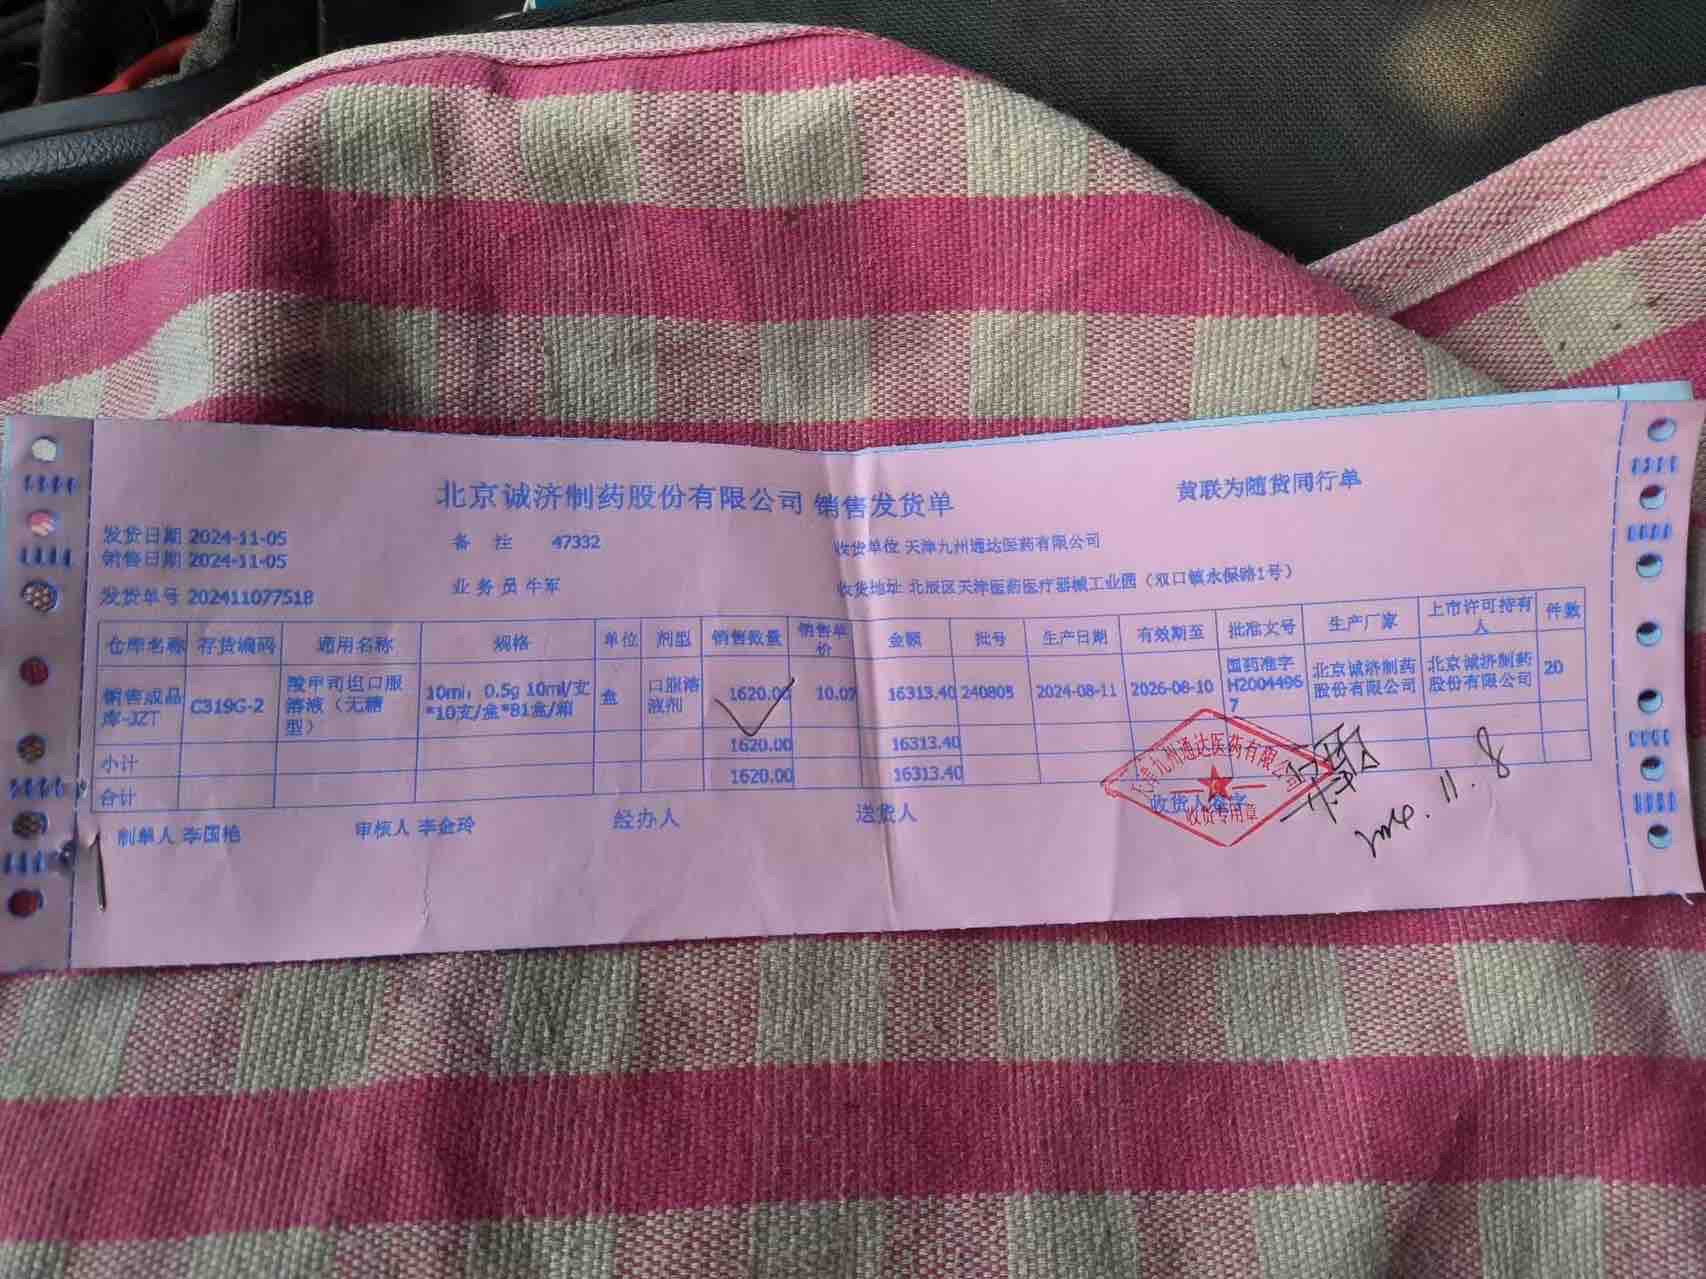 北京诚济制药股份有限公司 销售发货单
黄联为随货同行单
发货日期 2024-11-05
备 注 47332
收货单位 天津九州通达医药有限公司
销售日期 2024-11-05
发货单号 202411077518
业务员 牛军
收货地址 北辰区天津医药医疗器械工业园（双口镇永保路1号）
仓库名称 存货编码 通用名称 规格 单位 剂型 销售数量 销售单价 金额 批号 生产日期 有效期至 批准文号 生产厂家 上市许可持有人 件数
销售成品库-JZT C319G-2 羧甲司坦口服溶液（无糖型） 10ml：0.5g 10ml/支*10支/盒*81盒/箱 盒 口服溶液剂 1620.00 10.07 16313.40 240805 2024-08-11 2026-08-10 国药准字H20044967 北京诚济制药股份有限公司 北京诚济制药股份有限公司 20
小计 1620.00 16313.40
合计 1620.00 16313.40
制单人 李国艳
审核人 李金玲
经办人
送货人
收货人签字
天津九州通达医药有限公司
收货专用章
2024.11.8